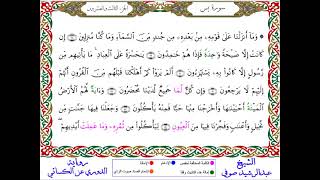 سورة يس
الجزء الثالث والعشرون
وَمَا أَنزَلْنَا عَلَىٰ قَوْمِهِ مِن بَعْدِهِ مِن جُندٍ مِّنَ السَّمَاءِ وَمَا كُنَّا مُنزِلِينَ إِن
كَانَتْ إِلَّا صَيْحَةً وَٰحِدَةً فَإِذَا هُمْ خَٰمِدُونَ يَٰحَسْرَةً عَلَى الْعِبَادِ مَا يَأْتِيهِم مِّن
رَّسُولٍ إِلَّا كَانُوا بِهِ يَسْتَهْزِءُونَ أَلَمْ يَرَوْا كَمْ أَهْلَكْنَا قَبْلَهُم مِّنَ الْقُرُونِ أَنَّهُمْ
إِلَيْهِمْ لَا يَرْجِعُونَ وَإِن كُلٌّ لَمَا جَمِيعٌ لَّدَيْنَا مُحْضَرُونَ وَءَايَةٌ لَّهُمُ الْأَرْضُ
الْمَيْتَةُ أَحْيَيْنَٰهَا وَأَخْرَجْنَا مِنْهَا حَبًّا فَمِنْهُ يَأْكُلُونَ وَجَعَلْنَا فِيهَا جَنَّٰتٍ مِّن
نَّخِيلٍ وَأَعْنَٰبٍ وَفَجَّرْنَا فِيهَا مِنَ الْعِيُونِ لِيَأْكُلُوا مِن ثُمُرِهِ وَمَا عَمِلَتْ أَيْدِيهِمْ
الشيخ
عبدالرشيد صوفي
رواية
الدوري عن الكسائي